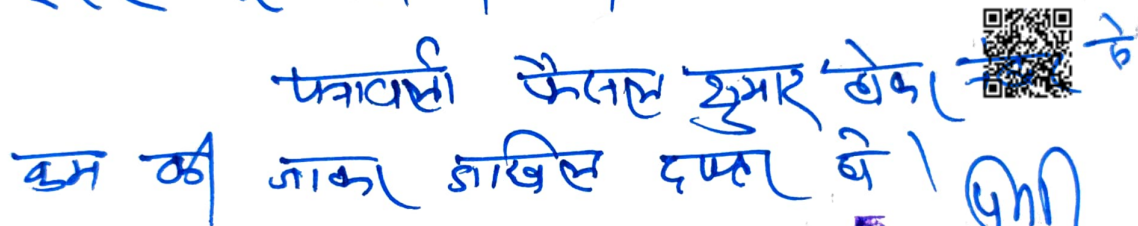 पत्रावली फैसल शुमार होकर से
कम की जाकर दाखिल दफ्तर हो।